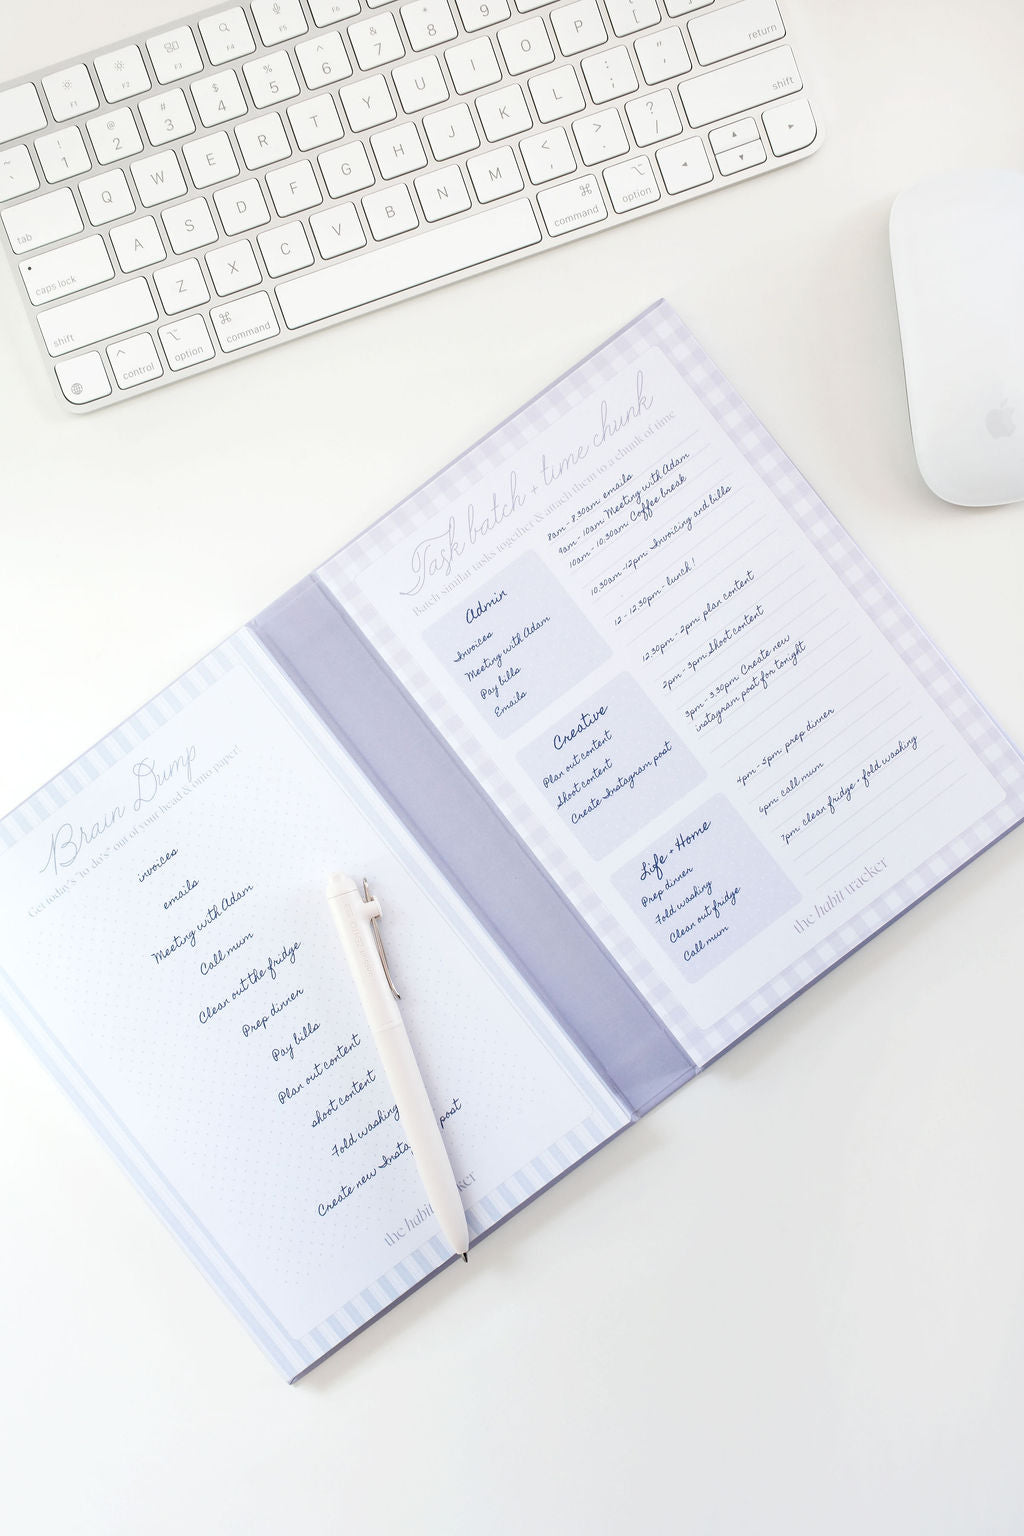 F1
F2
F3
F4
F5
F6
~
`
!
1
@
2
#
3
$
4
%
5
^
6
&
7
*
8
(
9
tab
Q
W
E
R
T
Y
U
I
O
P
{
[
caps lock
A
S
D
F
G
H
J
K
L
:
;
"
'
return
shift
Z
X
C
V
B
N
M
<
,
>
.
?
/
shift
control
option
command
command
option
Brain Dump
Get today's "to do's" out of your head & onto paper!
invoices
emails
Meeting with Adam
Call mum
Clean out the fridge
Prep dinner
Pay bills
Plan out content
shoot content
Fold washing
Create new Insta post
the habit
Task batch + time chunk
Batch similar tasks together & attach them to a chunk of time
Admin
Invoices
Meeting with Adam
Pay bills
Emails
Creative
Plan out content
Shoot content
Create Instagram post
Life + Home
Prep dinner
Fold washing
Clean out fridge
Call mum
8am - 8.30am: emails
9am - 10am: Meeting with Adam
10am - 10.30am: Coffee break
10.30am - 12pm: Invoicing and bills
12 - 12.30pm - lunch!
12.30pm - 2pm: plan content
2pm - 3pm: Shoot content
3pm - 3.30pm: Create new
instagram post for tonight
4pm - 5pm: prep dinner
6pm: call mum
7pm: clean fridge + fold washing
the habit tracker